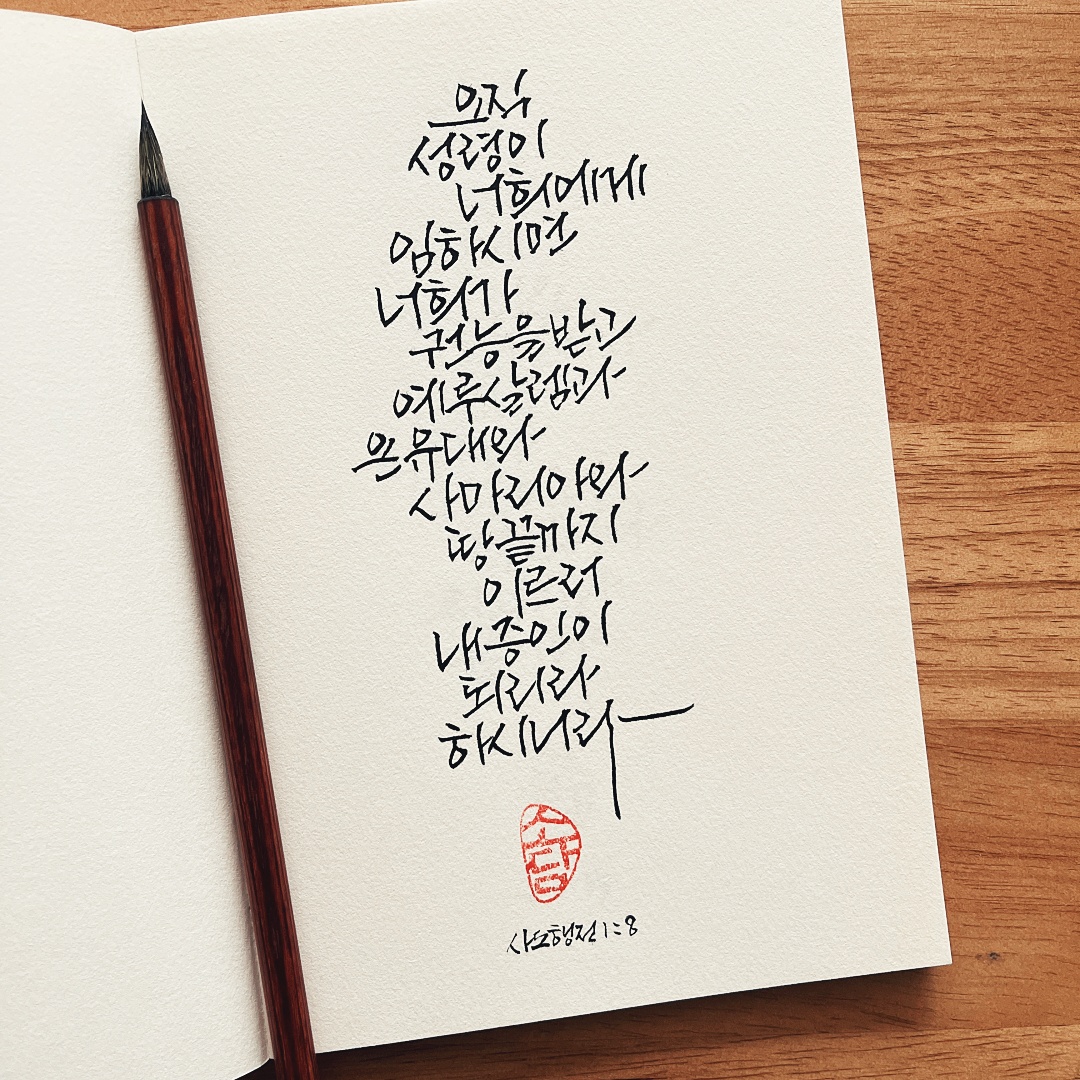 오직
성령이
너희에게
임하시면
너희가
권능을받고
예루살렘과
온유대와
사마리아와
땅끝까지
이르러
내증인이
되리라
하시니라
사도행전1:8